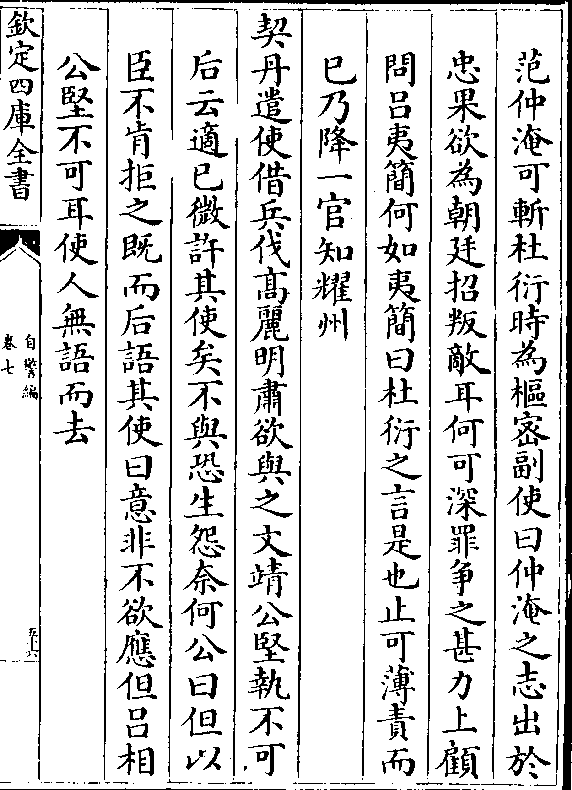 范仲淹可斬杜衍時為樞密副使曰仲淹之志出於
忠果欲為朝廷招叛敵耳何可深罪爭之甚力上顧
問吕夷簡何如夷簡曰杜衍之言是也止可薄責而
已乃降一官知耀州
契丹遣使借兵伐髙麗明肅欲與之文靖公堅執不可
后云適已微許其使矣不與恐生怨奈何公曰但以
臣不肯拒之既而后語其使曰意非不欲應但吕相
公堅不可耳使人無語而去
欽定四庫全書
自警編
卷七
五十六